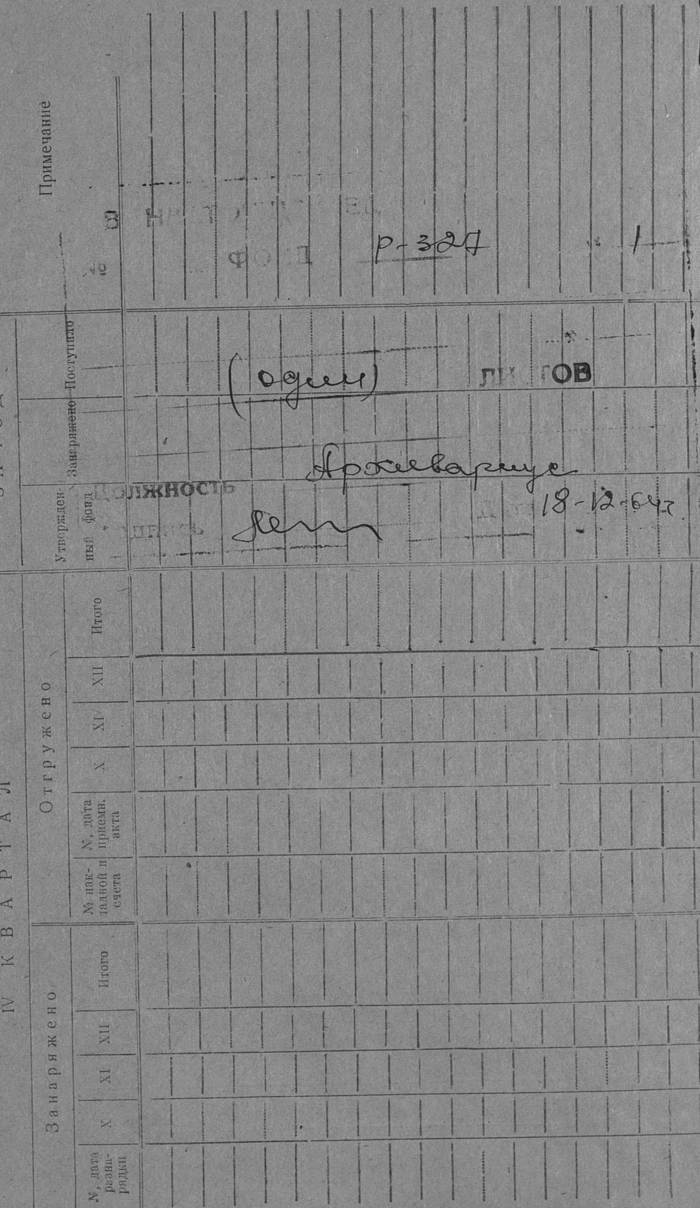 IV КВАРТАЛ
Занаряжено
Отгружено
№, дата
разна-
рядки
X
XI
XII
Итого
№ нак-
ладной и
счета
№, дата
приемн.
акта
X
XI
XII
Итого
Утвержден-
ный фонд
Занаряжено
Поступило
Примечание
В
ФОНД Р-327 1
(один) ЛИСТОВ
Архивариус
ДОЛЖНОСТЬ
18-12-64г